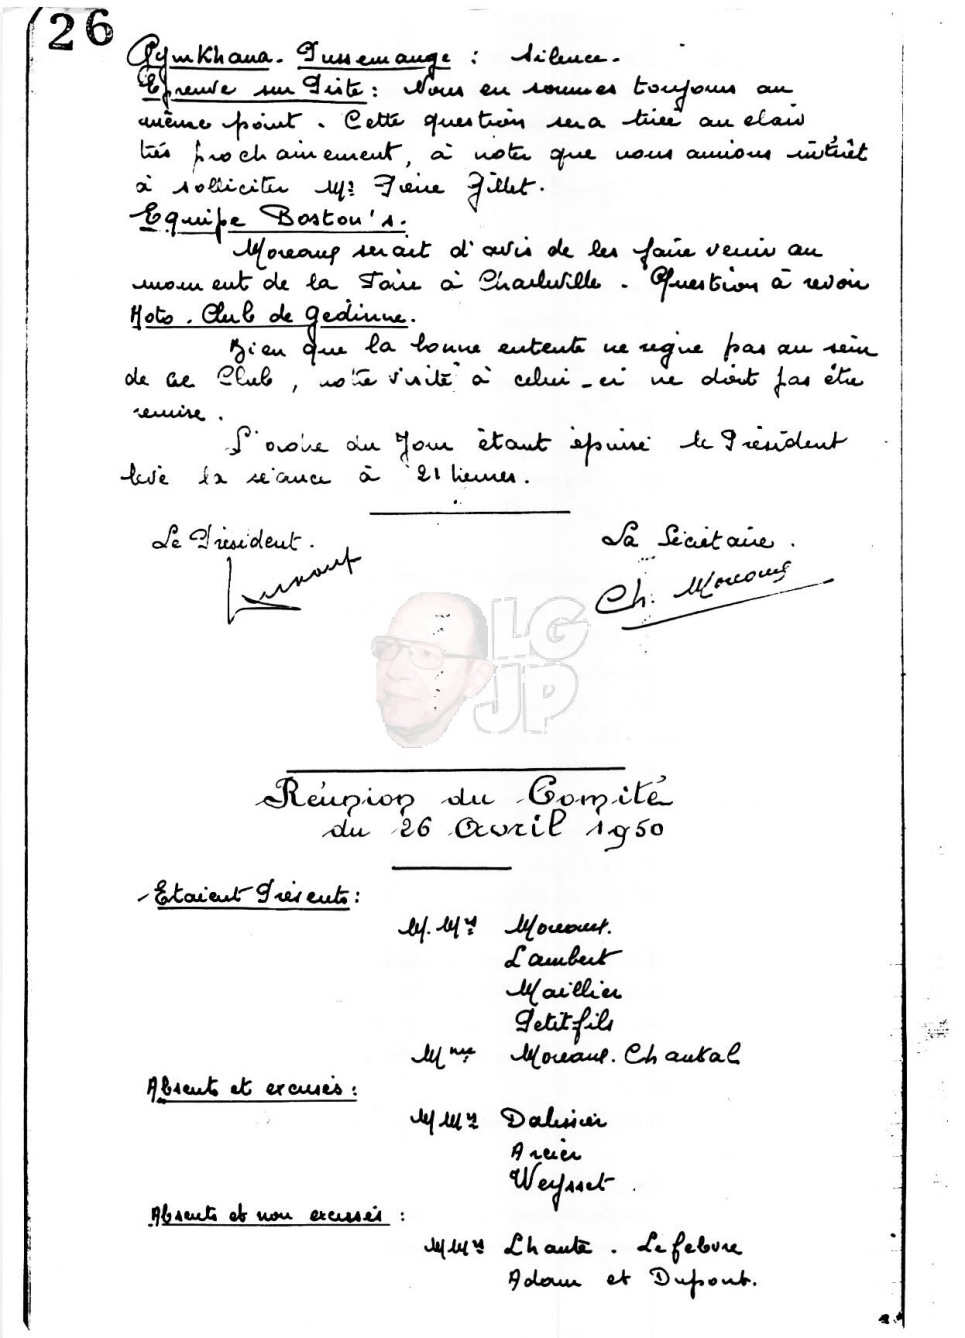 26
Gymkhana. Pussemange : Silence.
Epreuve sur Piste : Nous en sommes toujours au
même point. Cette question sera tirée au clair
très prochainement, à noter que nous aurions intérêt
à solliciter Mr Pierre Gillet.
Equipe Boston's.
Moreaux serait d'avis de les faire venir au
moment de la Foire à Charleville. Question à revoir
Moto. Club de Gedinne.
Bien que la bonne entente ne règne pas au sein
de ce Club, notre visite à celui-ci ne doit pas être
remise.
L'ordre du Jour étant épuisé le Président
lève la séance à 21 heures.
Le Président. La Secrétaire.
Ch. Moreaux
LG
JP
Réunion du Comité
du 26 Avril 1950
Etaient Présents :
M.Mrs Moreaux.
Lambert
Maillier
Petitfils
Mme Moreaux. Chantal
Absents et excusés :
MMrs Dalissier
Arcier
Weysset.
Absents et non excusés :
MMrs Lhauté. Lefebvre
Adam et Dupont.